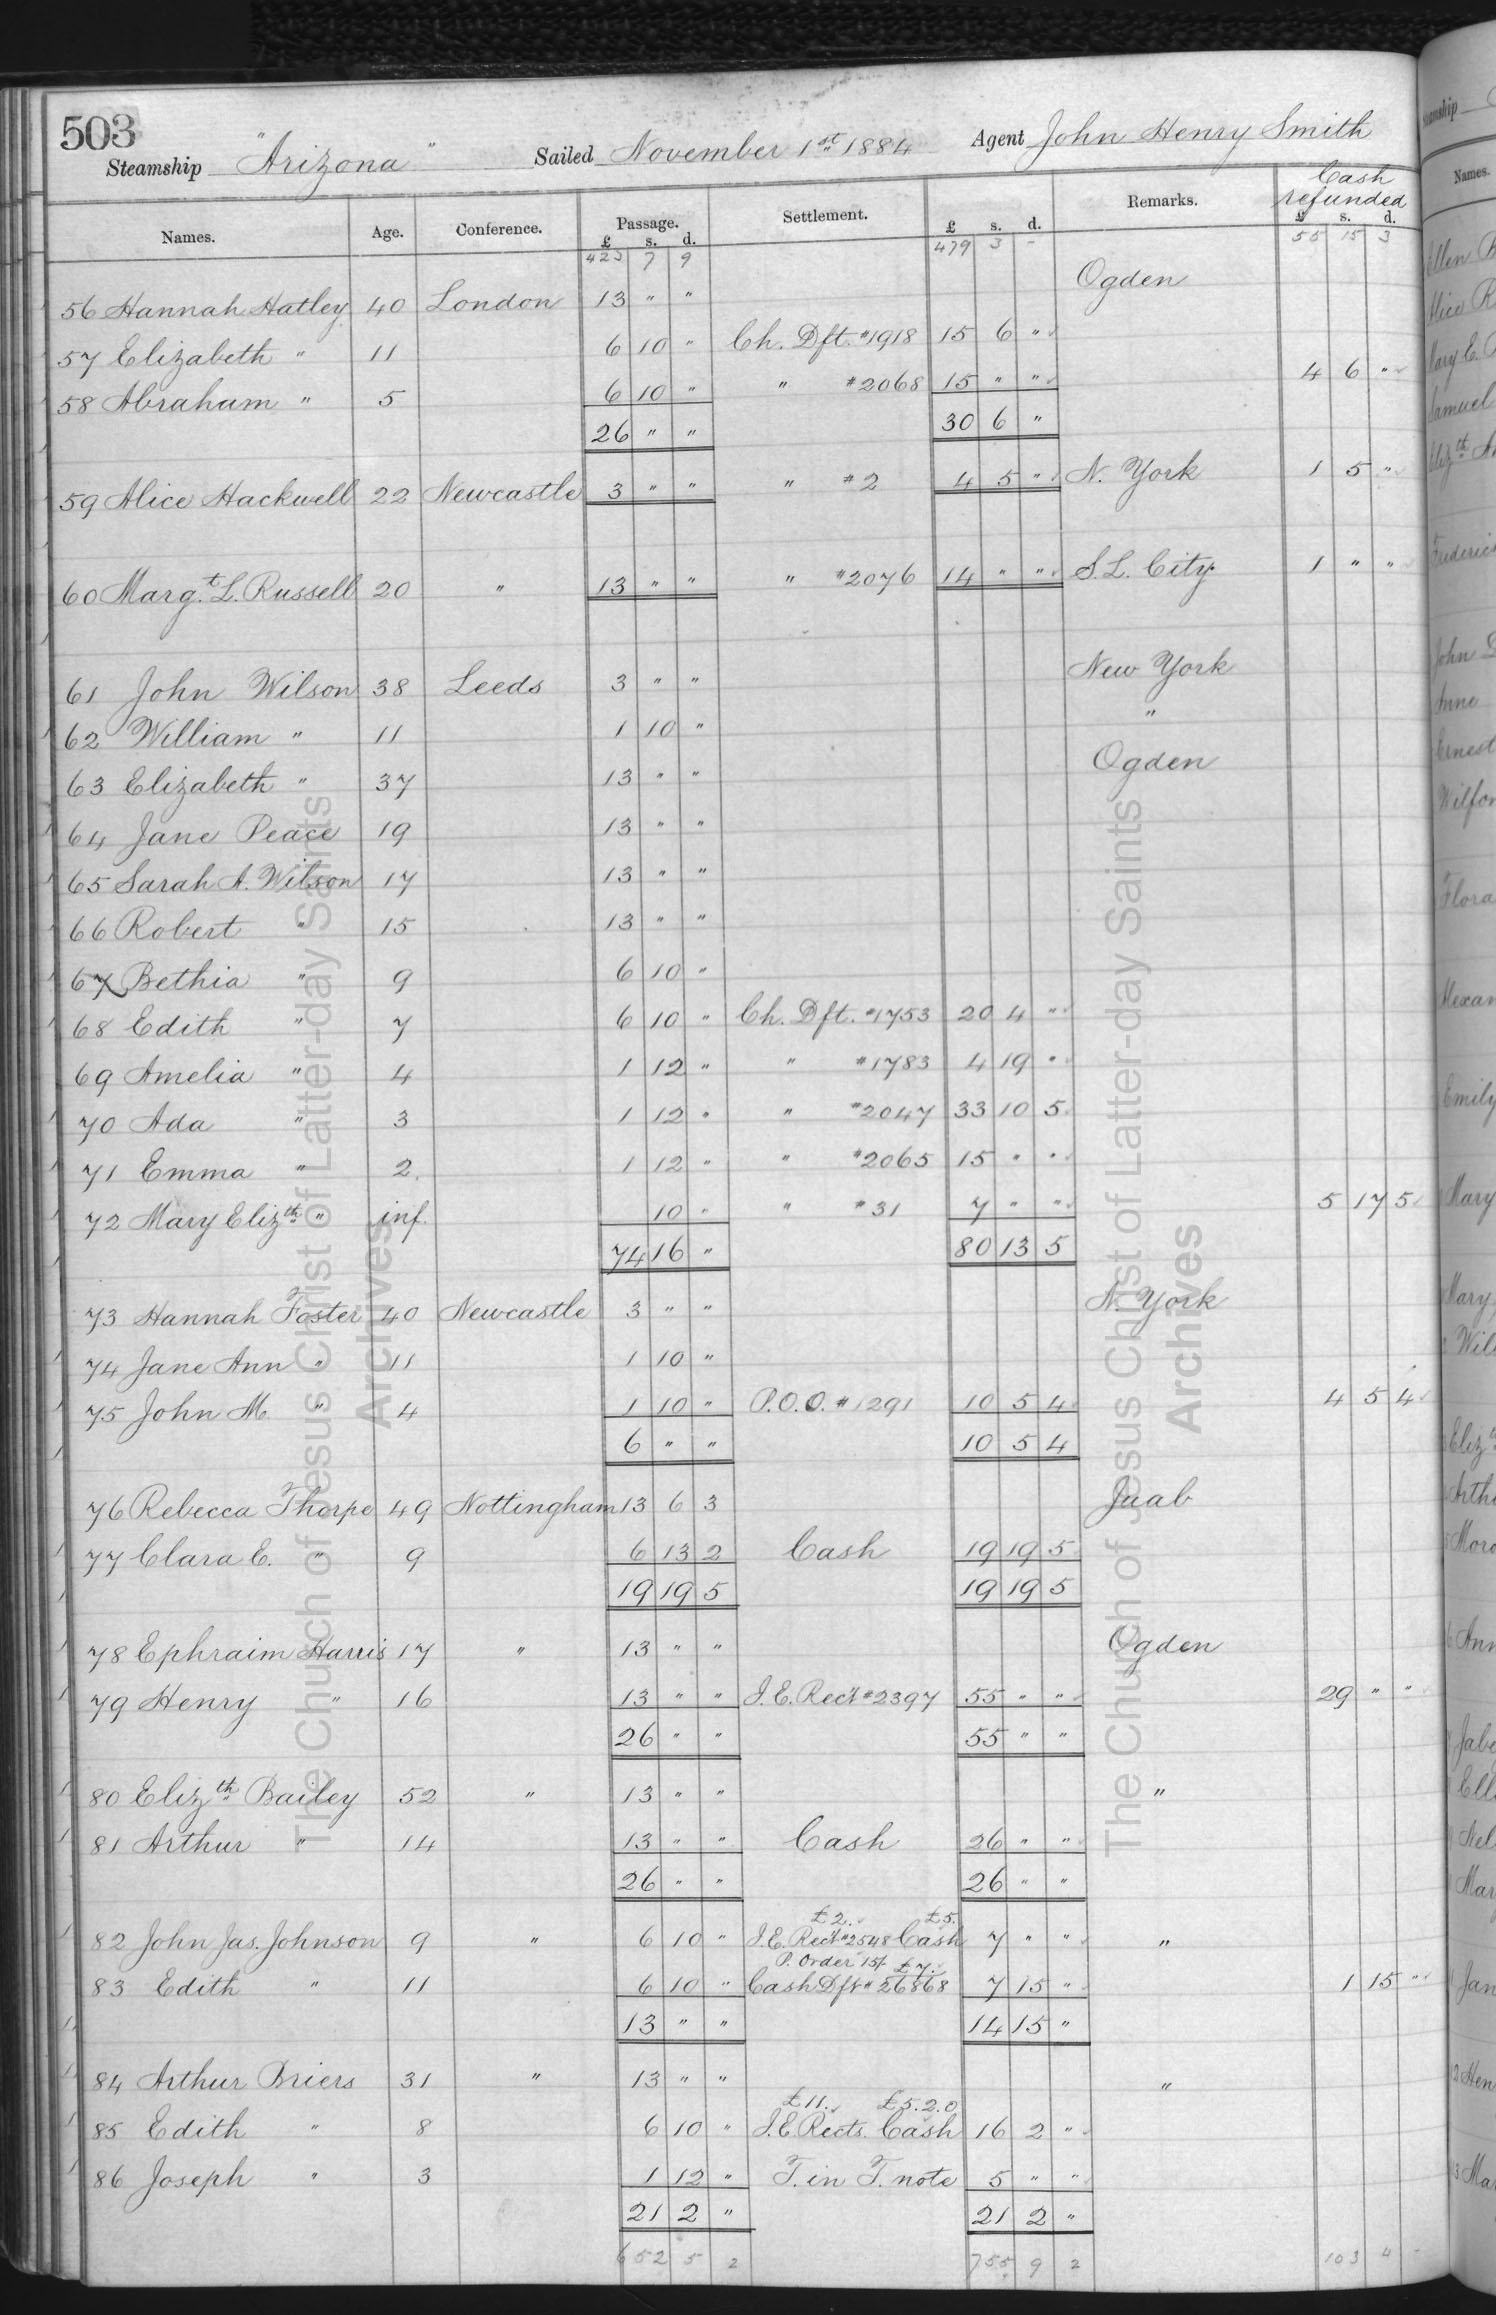 503
Steamship "Arizona" Sailed November 1st 1884 Agent John Henry Smith
Names. Age. Conference. Passage. Settlement. £ s. d. Remarks. Cash refunded
£ s. d. £ s. d.
423 7 9 479 3 - 55 15 3
56 Hannah Hatley 40 London 13 " " Ogden
57 Elizabeth " 11 6 10 " Ch. Dft. #1918 15 6 "
58 Abraham " 5 6 10 " " #2068 15 " " 4 6 "
26 " " 30 6 "
59 Alice Hackwell 22 Newcastle 3 " " " #2 4 5 " N. York 1 5 "
60 Marg.t L. Russell 20 " 13 " " " #2076 14 " " S.L. City 1 " "
61 John Wilson 38 Leeds 3 " " New York
62 William " 11 1 10 " "
63 Elizabeth " 37 13 " " Ogden
64 Jane Peace 19 13 " "
65 Sarah A. Wilson 17 13 " "
66 Robert " 15 13 " "
67 Bethia " 9 6 10 "
68 Edith " 7 6 10 " Ch. Dft. #1753 20 4 "
69 Amelia " 4 1 12 " " #1783 4 19 "
70 Ada " 3 1 12 " " #2047 33 10 5
71 Emma " 2 1 12 " " #2065 15 " "
72 Mary Elizth " inf. 10 " " #31 7 " " 5 17 5
74 16 " 80 13 5
73 Hannah Foster 40 Newcastle 3 " " N. York
74 Jane Ann " 11 1 10 "
75 John M. " 4 1 10 " P.O.O. #1291 10 5 4 4 5 4
6 " " 10 5 4
76 Rebecca Thorpe 49 Nottingham 13 6 3 Juab
77 Clara E. " 9 6 13 2 Cash 19 19 5
19 19 5 19 19 5
78 Ephraim Harris 17 " 13 " " Ogden
79 Henry " 16 13 " " I.E. Rect #2397 55 " " 29 " "
26 " " 55 " "
80 Elizth Bailey 52 " 13 " " "
81 Arthur " 14 13 " " Cash 26 " "
26 " " 26 " "
£2. £5.
82 John Jas. Johnson 9 " 6 10 " I.E. Rect #2548 Cash 7 " " "
P. Order 15/- £7.
83 Edith " 11 6 10 " Cash Dft # 26868 7 15 " 1 15 "
13 " " 14 15 "
84 Arthur Briers 31 " 13 " " "
£11. £5.2.0
85 Edith " 8 6 10 " I.E. Rects. Cash 16 2 "
86 Joseph " 3 1 12 " T. in T. note 5 " "
21 2 " 21 2 "
652 5 2 755 9 2 103 4 -
The Church of Jesus Christ of Latter-day Saints
Archives
The Church of Jesus Christ of Latter-day Saints
Archives